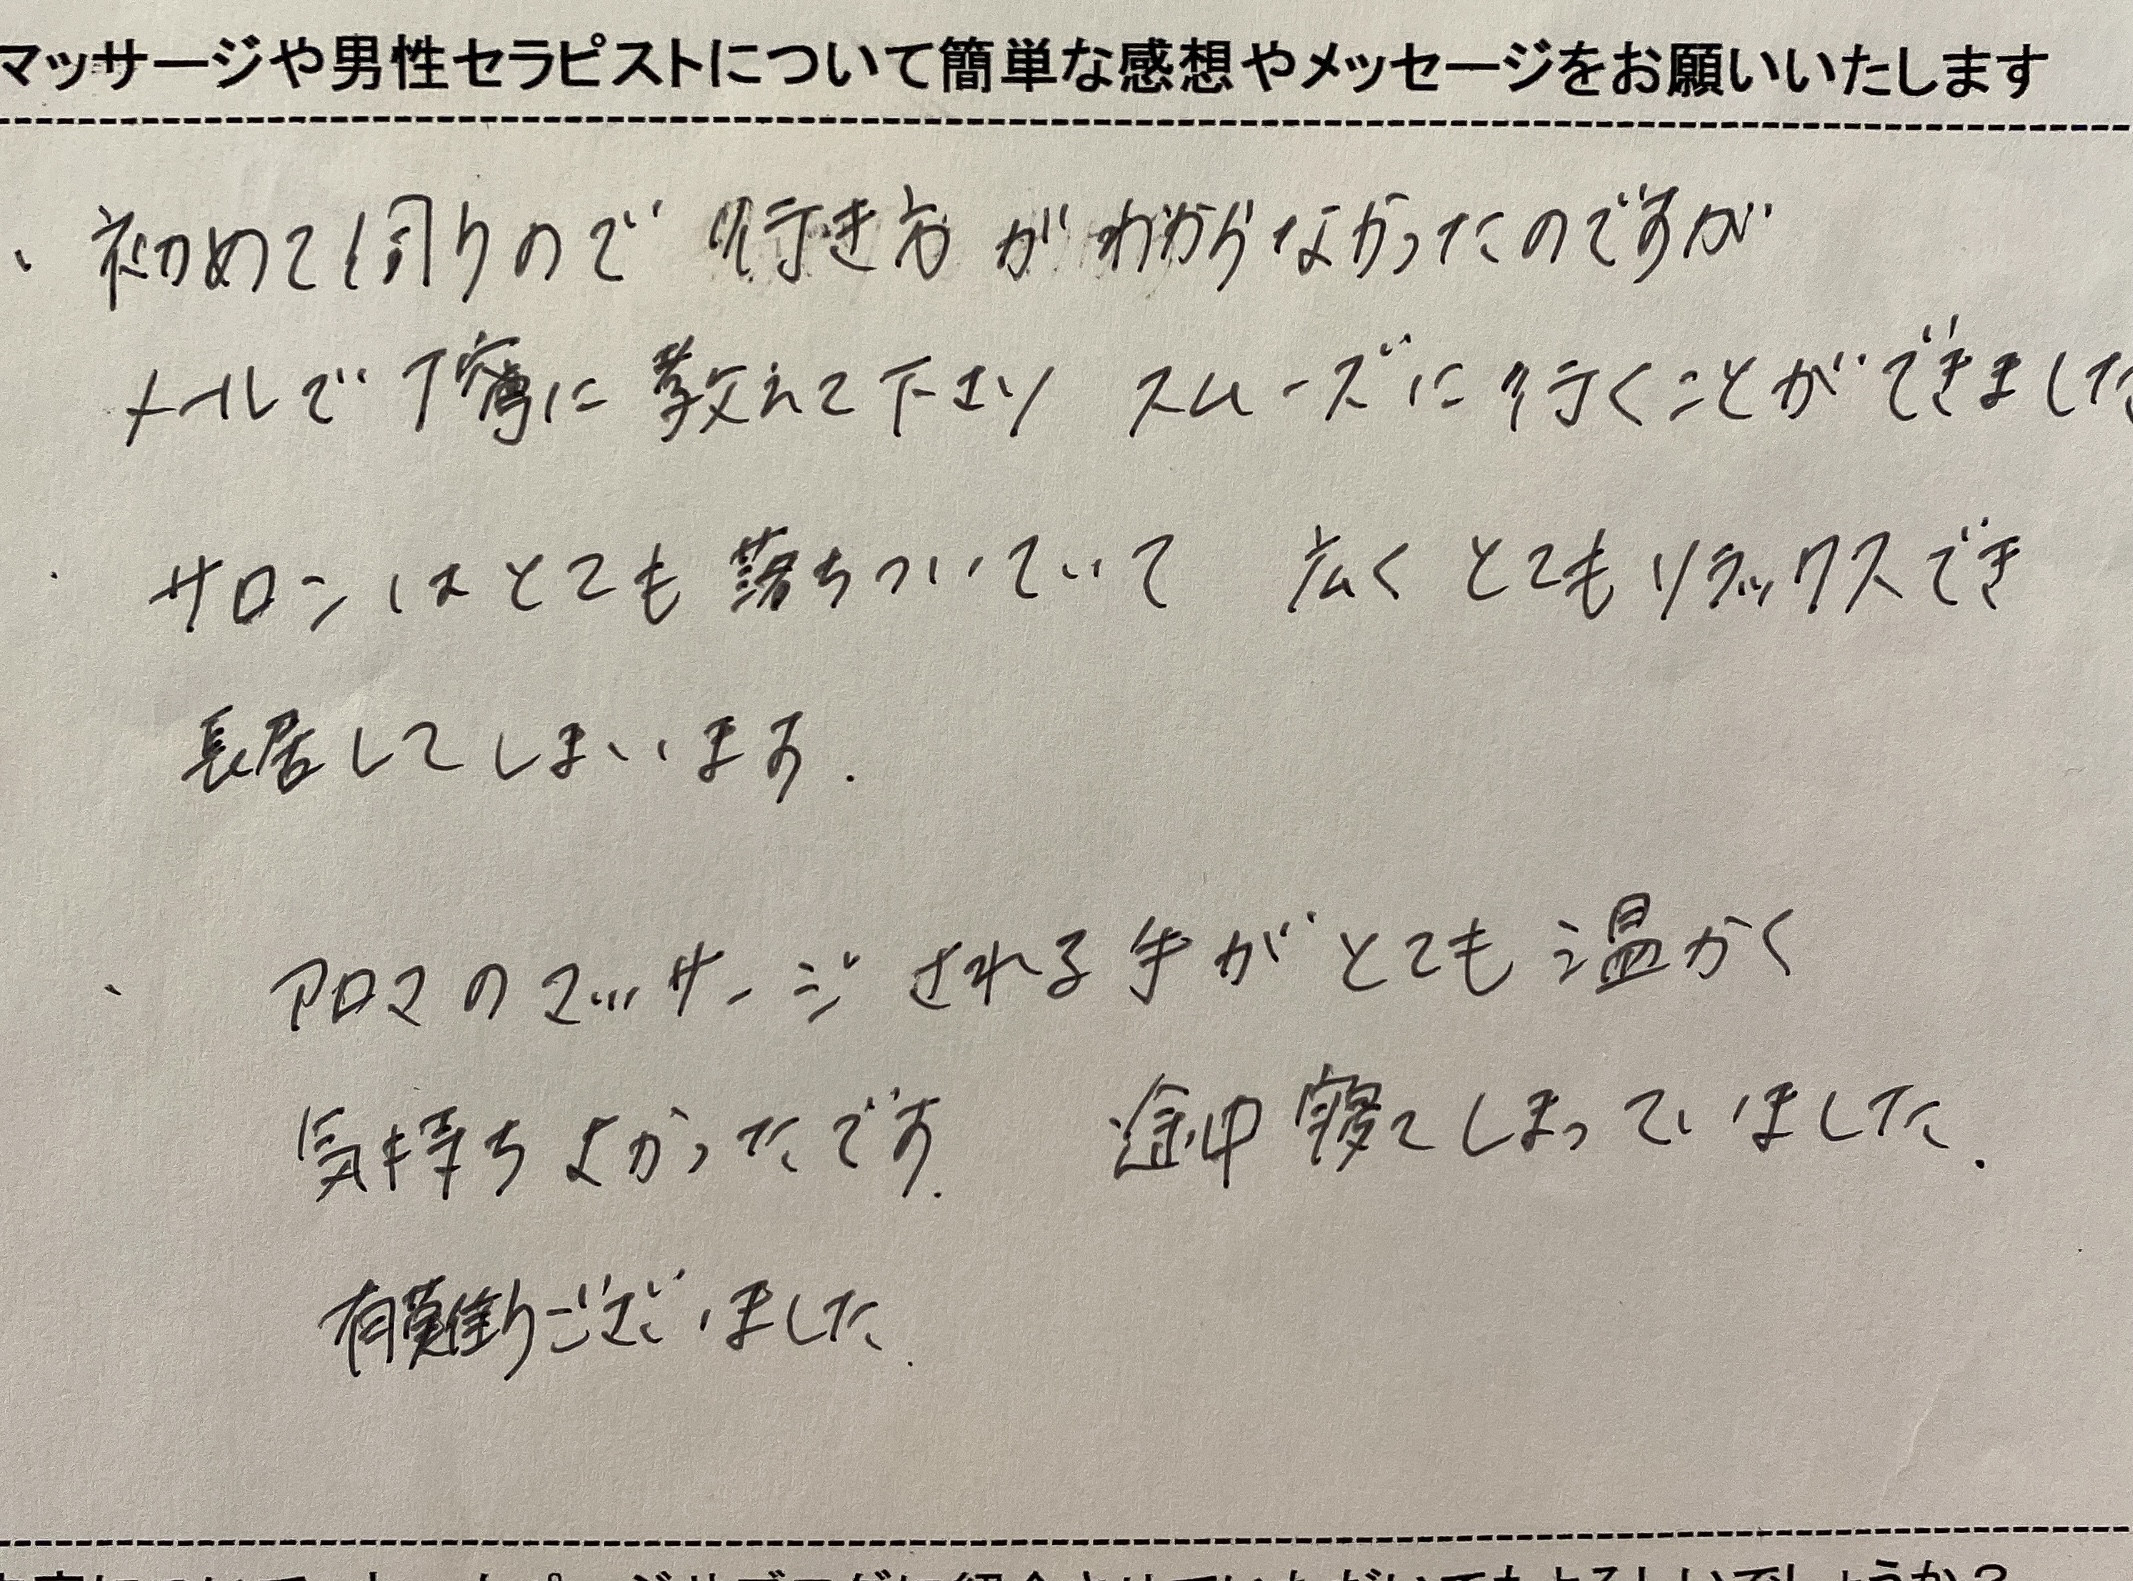 マッサージや男性セラピストについて簡単な感想やメッセージをお願いいたします
、初めて伺うので 行き方がわからなかったのですが
メールで丁寧に教えて下さり スムーズに行くことができました
・サロンはとても落ちついていて 広くとてもリラックスでき
長居してしまいます.
、アロマのマッサージされる手がとても温かく
気持ちよかったです. 途中寝てしまっていました.
有難うございました.
紹介させていただいてもよろしいでしょうか？